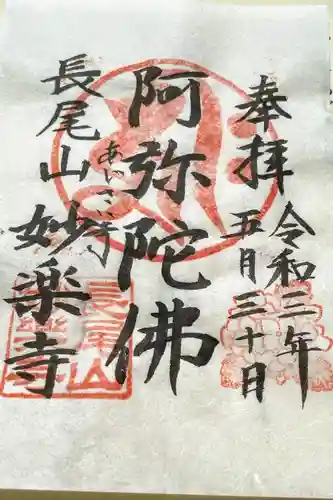 奉拝
令和二年
五月三十日
阿弥陀佛
あじさい寺
長尾山
妙楽寺